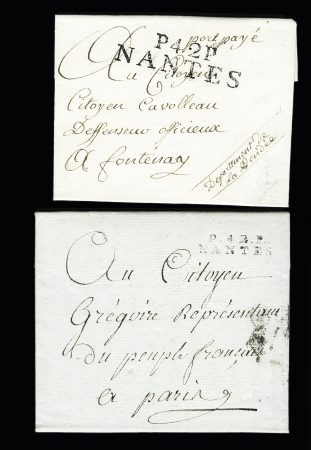 port payé
P.42.P
NANTES
Au Citoyen
Citoyen Cavolleau
Deffenseur officieux
A fontenay
Departement
La Vendée
P.42.P.
NANTES
Au Citoyen
Grégoire Représentant
du peuple français
a paris